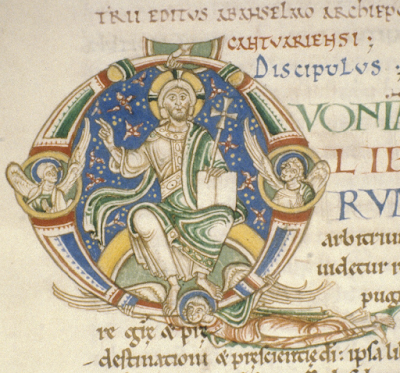 TRII EDITVS ABANSELMO ARCHIEP
CANTVARIENSI ;
DISCIPVLVS ;
QVONIA
LIB
RVM
arbitriu
uidetur r
pug
re & prę
destinationi & prescientię di: ipsa li